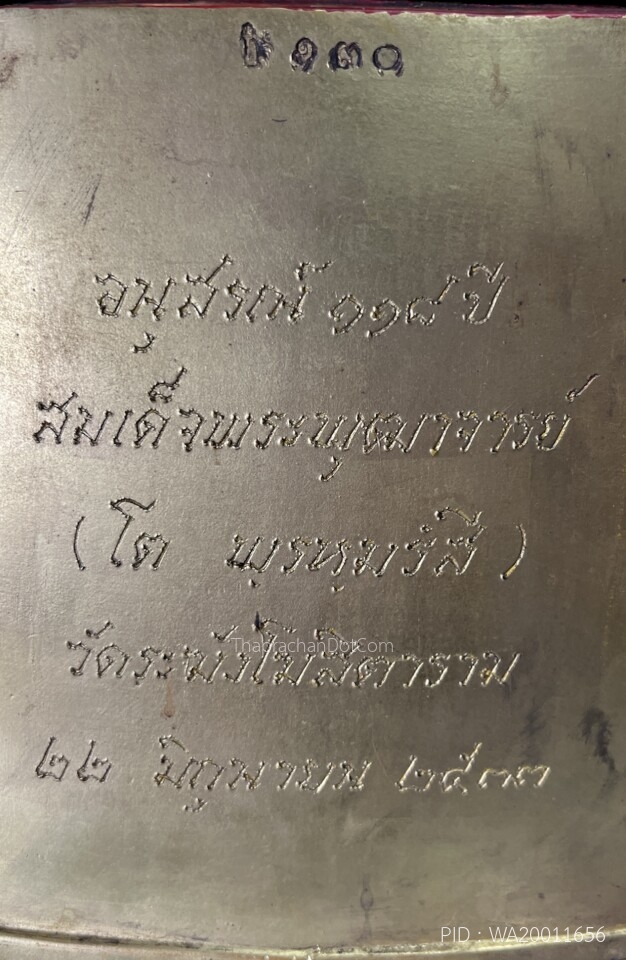 ๑๓๐
อนุสรณ์ ๑๑๘ ปี
สมเด็จพระพุฒาจารย์
(โต พฺรหฺมรํสี)
วัดระฆังโฆสิตาราม
ThaprachanDotCom
๒๒ มิถุนายน ๒๕๓๓
PID : WA20011656